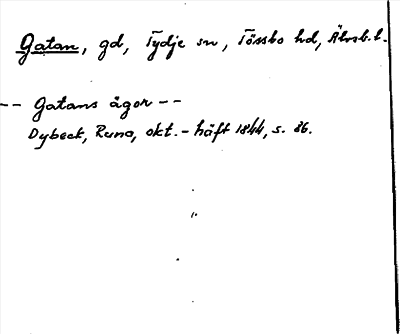 Gatan, gd, Tydje sn, Tössbo hd, Älvsb. l.
-- Gatans ägor --
Dybeck, Runa, okt.-häft 1844, s. 86.